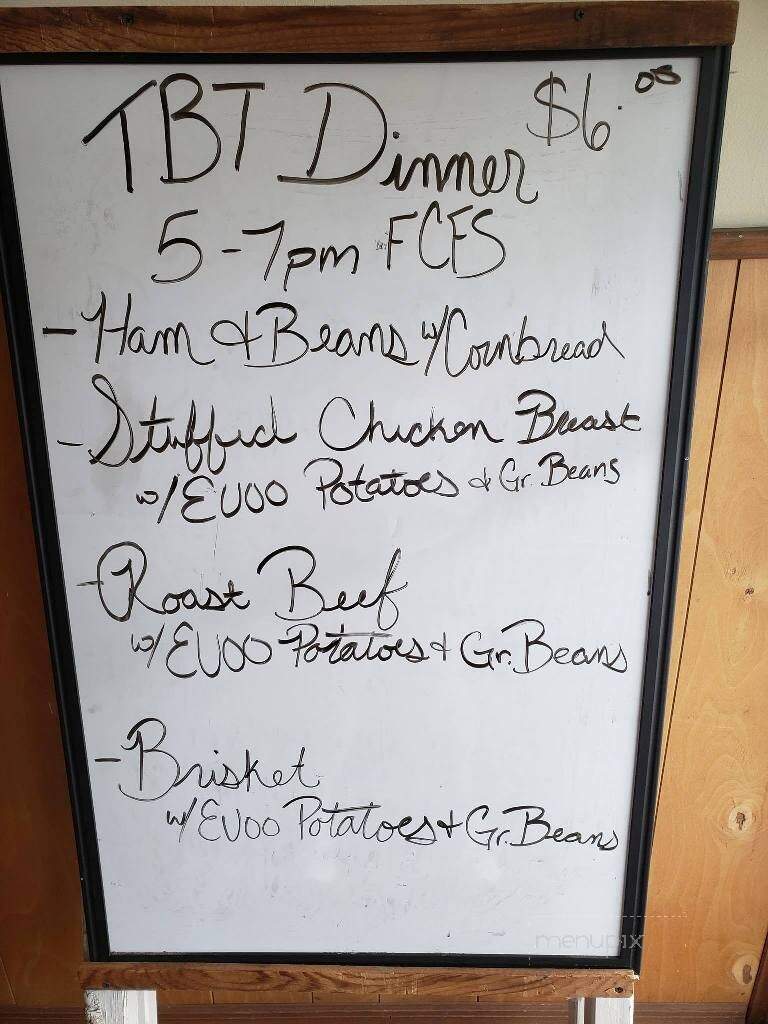 TBT Dinner $6.00
5-7pm FCFS
- Ham & Beans w/ Cornbread
- Stuffed Chicken Breast
w/ EVOO Potatoes & Gr. Beans
- Roast Beef
w/ EVOO Potatoes + Gr. Beans
- Brisket
w/ EVOO Potatoes + Gr. Beans
menupix